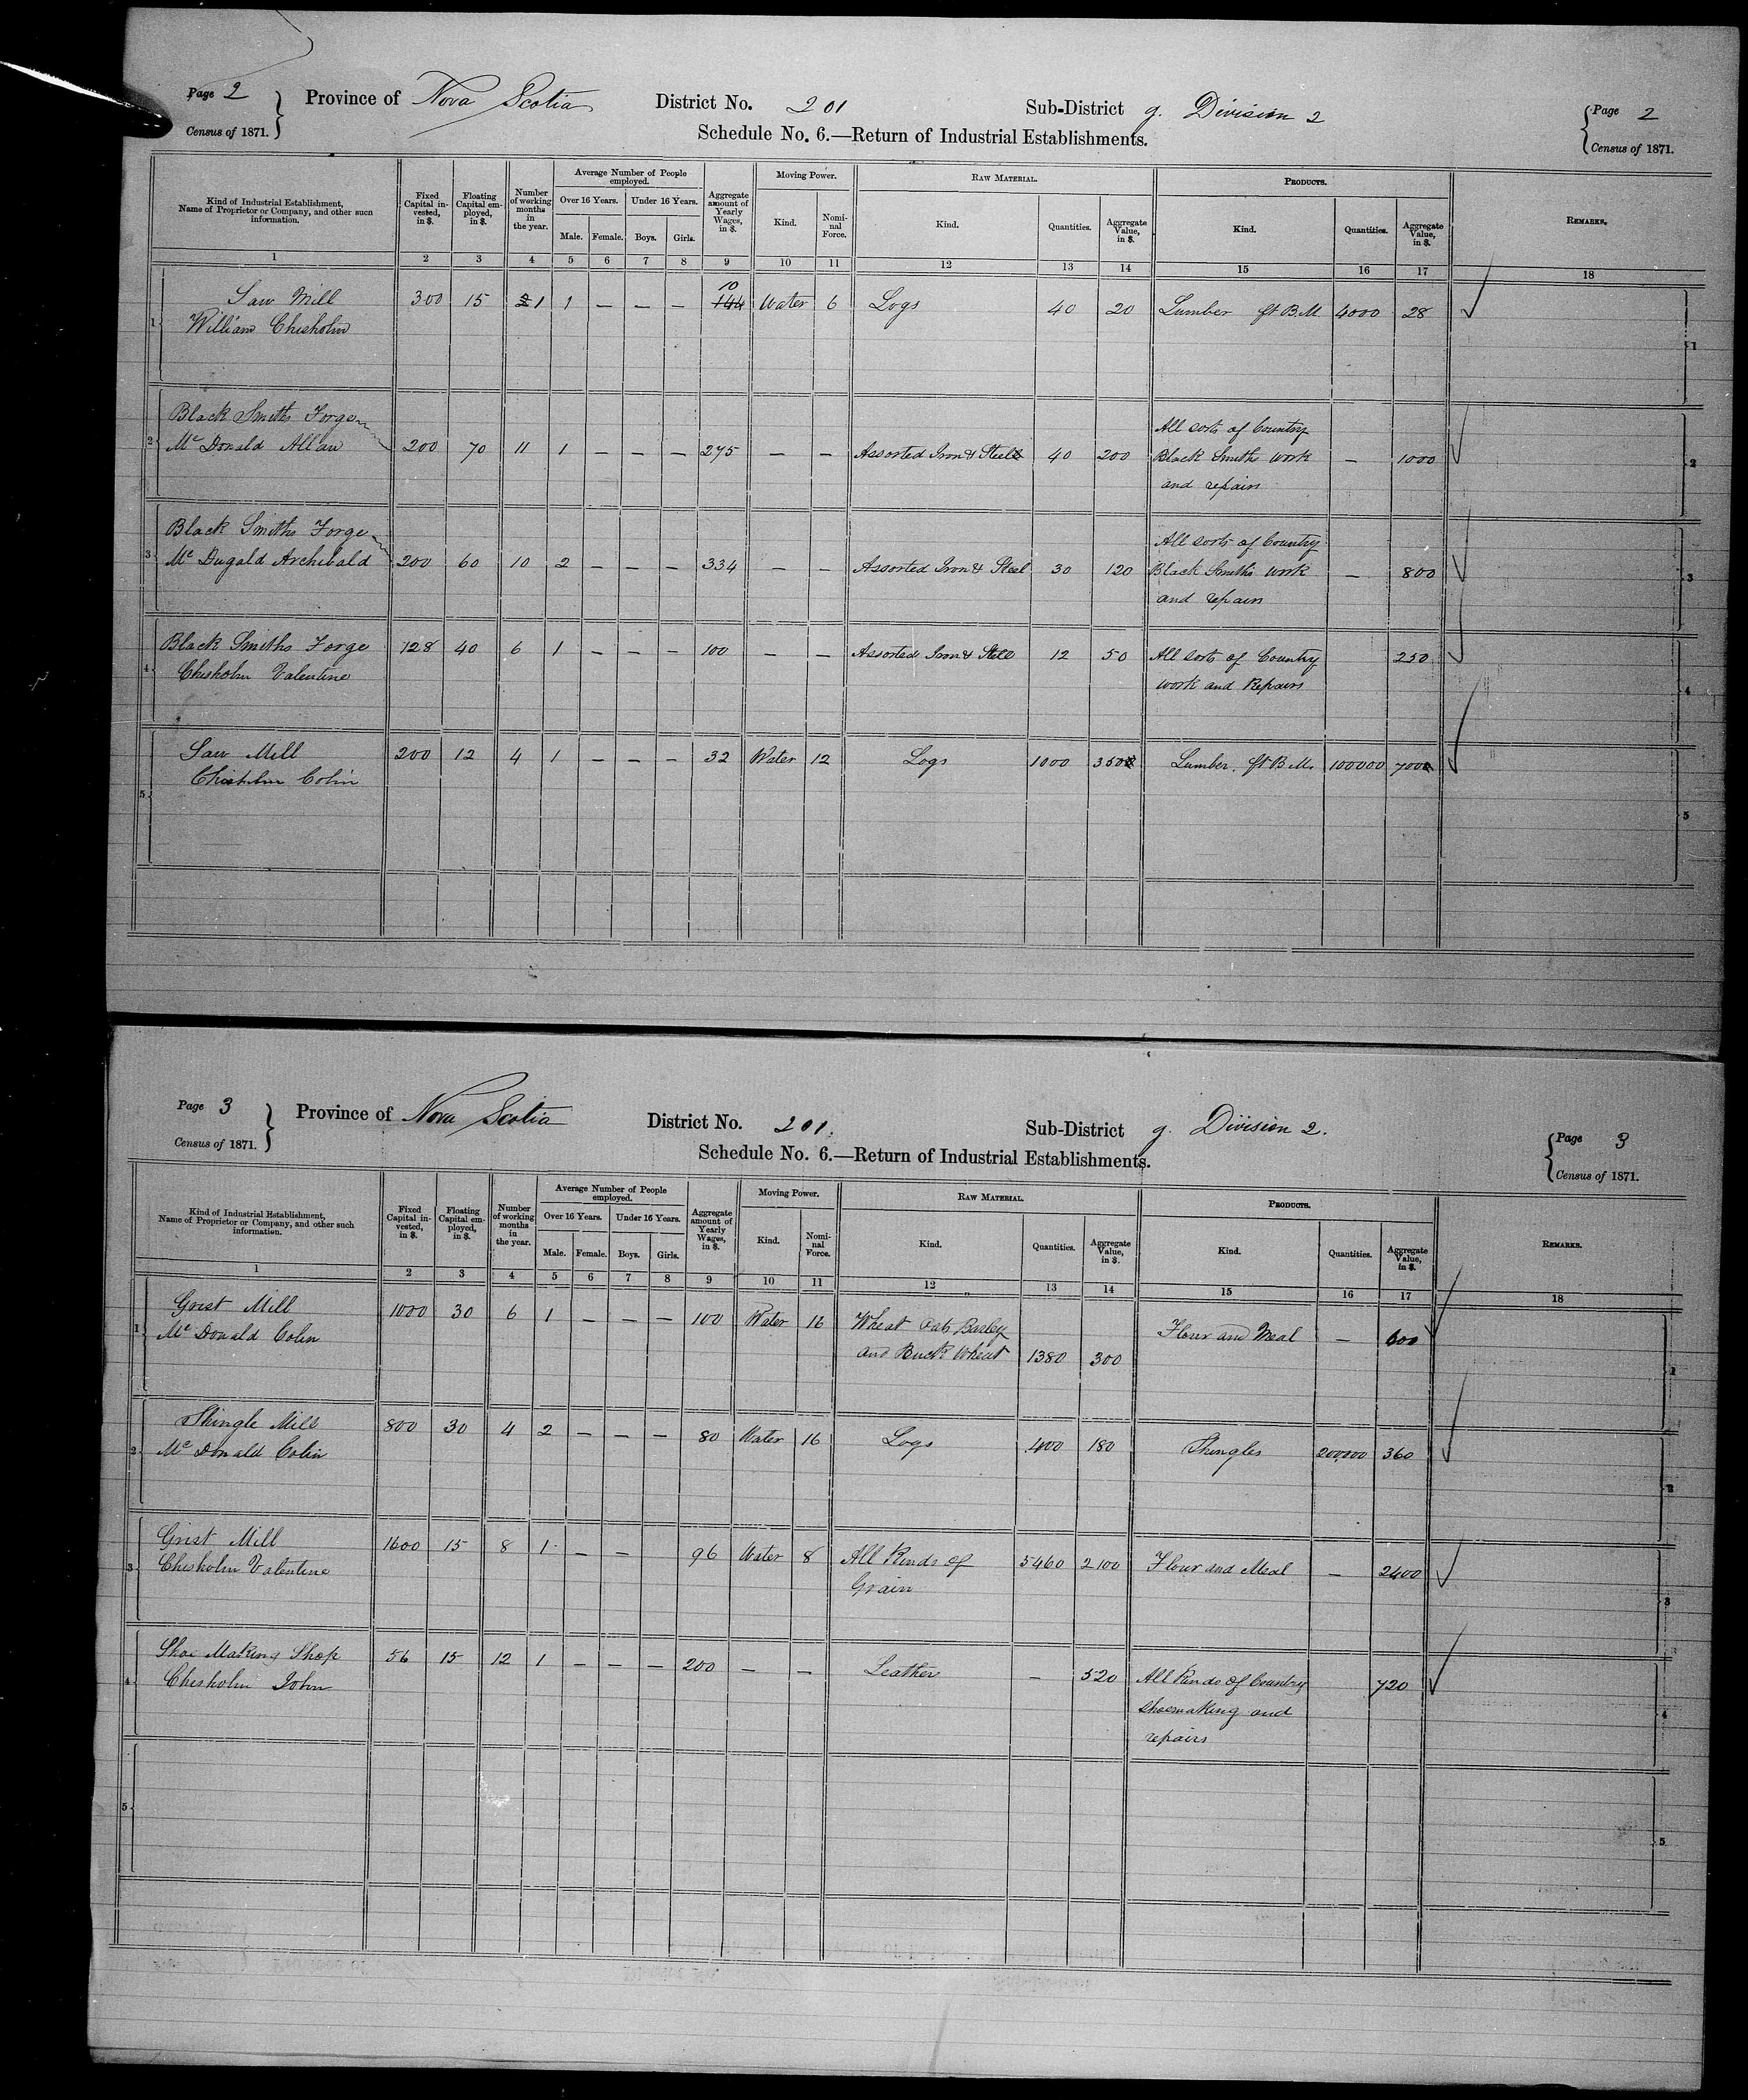 Page 2
Census of 1871.
Province of Nova Scotia
District No. 201
Sub-District g. Division 2
Page 2
Census of 1871.
Schedule No. 6.—Return of Industrial Establishments.
Kind of Industrial Establishment, Name of Proprietor or Company, and other such information.
Fixed Capital invested, in $.
Floating Capital employed, in $.
Number of working months in the year.
Average Number of People employed.
Over 16 Years. Under 16 Years.
Male. Female. Boys. Girls.
Aggregate amount of Yearly Wages, in $.
Moving Power.
Kind. Nominal Force.
Raw Material.
Kind. Quantities. Aggregate Value, in $.
Products.
Kind. Quantities. Aggregate Value, in $.
Remarks.
1 2 3 4 5 6 7 8 9 10 11 12 13 14 15 16 17 18
10
1 Saw Mill 300 15 2 1 1 — — — 144 Water 6 Logs 40 20 Lumber ft B.M 4000 28 1
William Chisholm
Black Smiths Forge All sorts of Country
2 Mc Donald Allan 200 70 11 1 — — — 275 — — Assorted Iron & Steel 40 200 Black Smiths work — 1000 2
and repairs
Black Smiths Forge All sorts of Country
3 Mc Dugald Archibald 200 60 10 2 — — — 334 — — Assorted Iron & Steel 30 120 Black Smiths work — 800 3
and repairs
4 Black Smiths Forge 128 40 6 1 — — — 100 — — Assorted Iron & Steel 12 50 All sorts of Country 250 4
Chisholm Valentine work and Repairs
5 Saw Mill 200 12 4 1 — — — 32 Water 12 Logs 1000 350 Lumber. ft B.M. 100000 700 5
Chisholm Colin
Page 3
Census of 1871.
Province of Nova Scotia
District No. 201.
Sub-District g. Division 2.
Page 3
Census of 1871.
Schedule No. 6.—Return of Industrial Establishments.
Kind of Industrial Establishment, Name of Proprietor or Company, and other such information.
Fixed Capital invested, in $.
Floating Capital employed, in $.
Number of working months in the year.
Average Number of People employed.
Over 16 Years. Under 16 Years.
Male. Female. Boys. Girls.
Aggregate amount of Yearly Wages, in $.
Moving Power.
Kind. Nominal Force.
Raw Material.
Kind. Quantities. Aggregate Value, in $.
Products.
Kind. Quantities. Aggregate Value, in $.
Remarks.
1 2 3 4 5 6 7 8 9 10 11 12 13 14 15 16 17 18
1 Grist Mill 1000 30 6 1 — — — 100 Water 16 Wheat Oats Barley Flour and Meal — 600 1
Mc Donald Colin and Buck Wheat 1380 300
2 Shingle Mill 800 30 4 2 — — — 80 Water 16 Logs 400 180 Shingles 200,000 360 2
Mc Donald Colin
3 Grist Mill 1600 15 8 1 — — 96 Water 8 All Kinds of 5460 2100 Flour and Meal — 2400 3
Chisholm Valentine Grain
4 Shoe Making Shop 56 15 12 1 — — — 200 — — Leather — 520 All Kinds of Country 720 4
Chisholm John shoemaking and
repairs
5 5